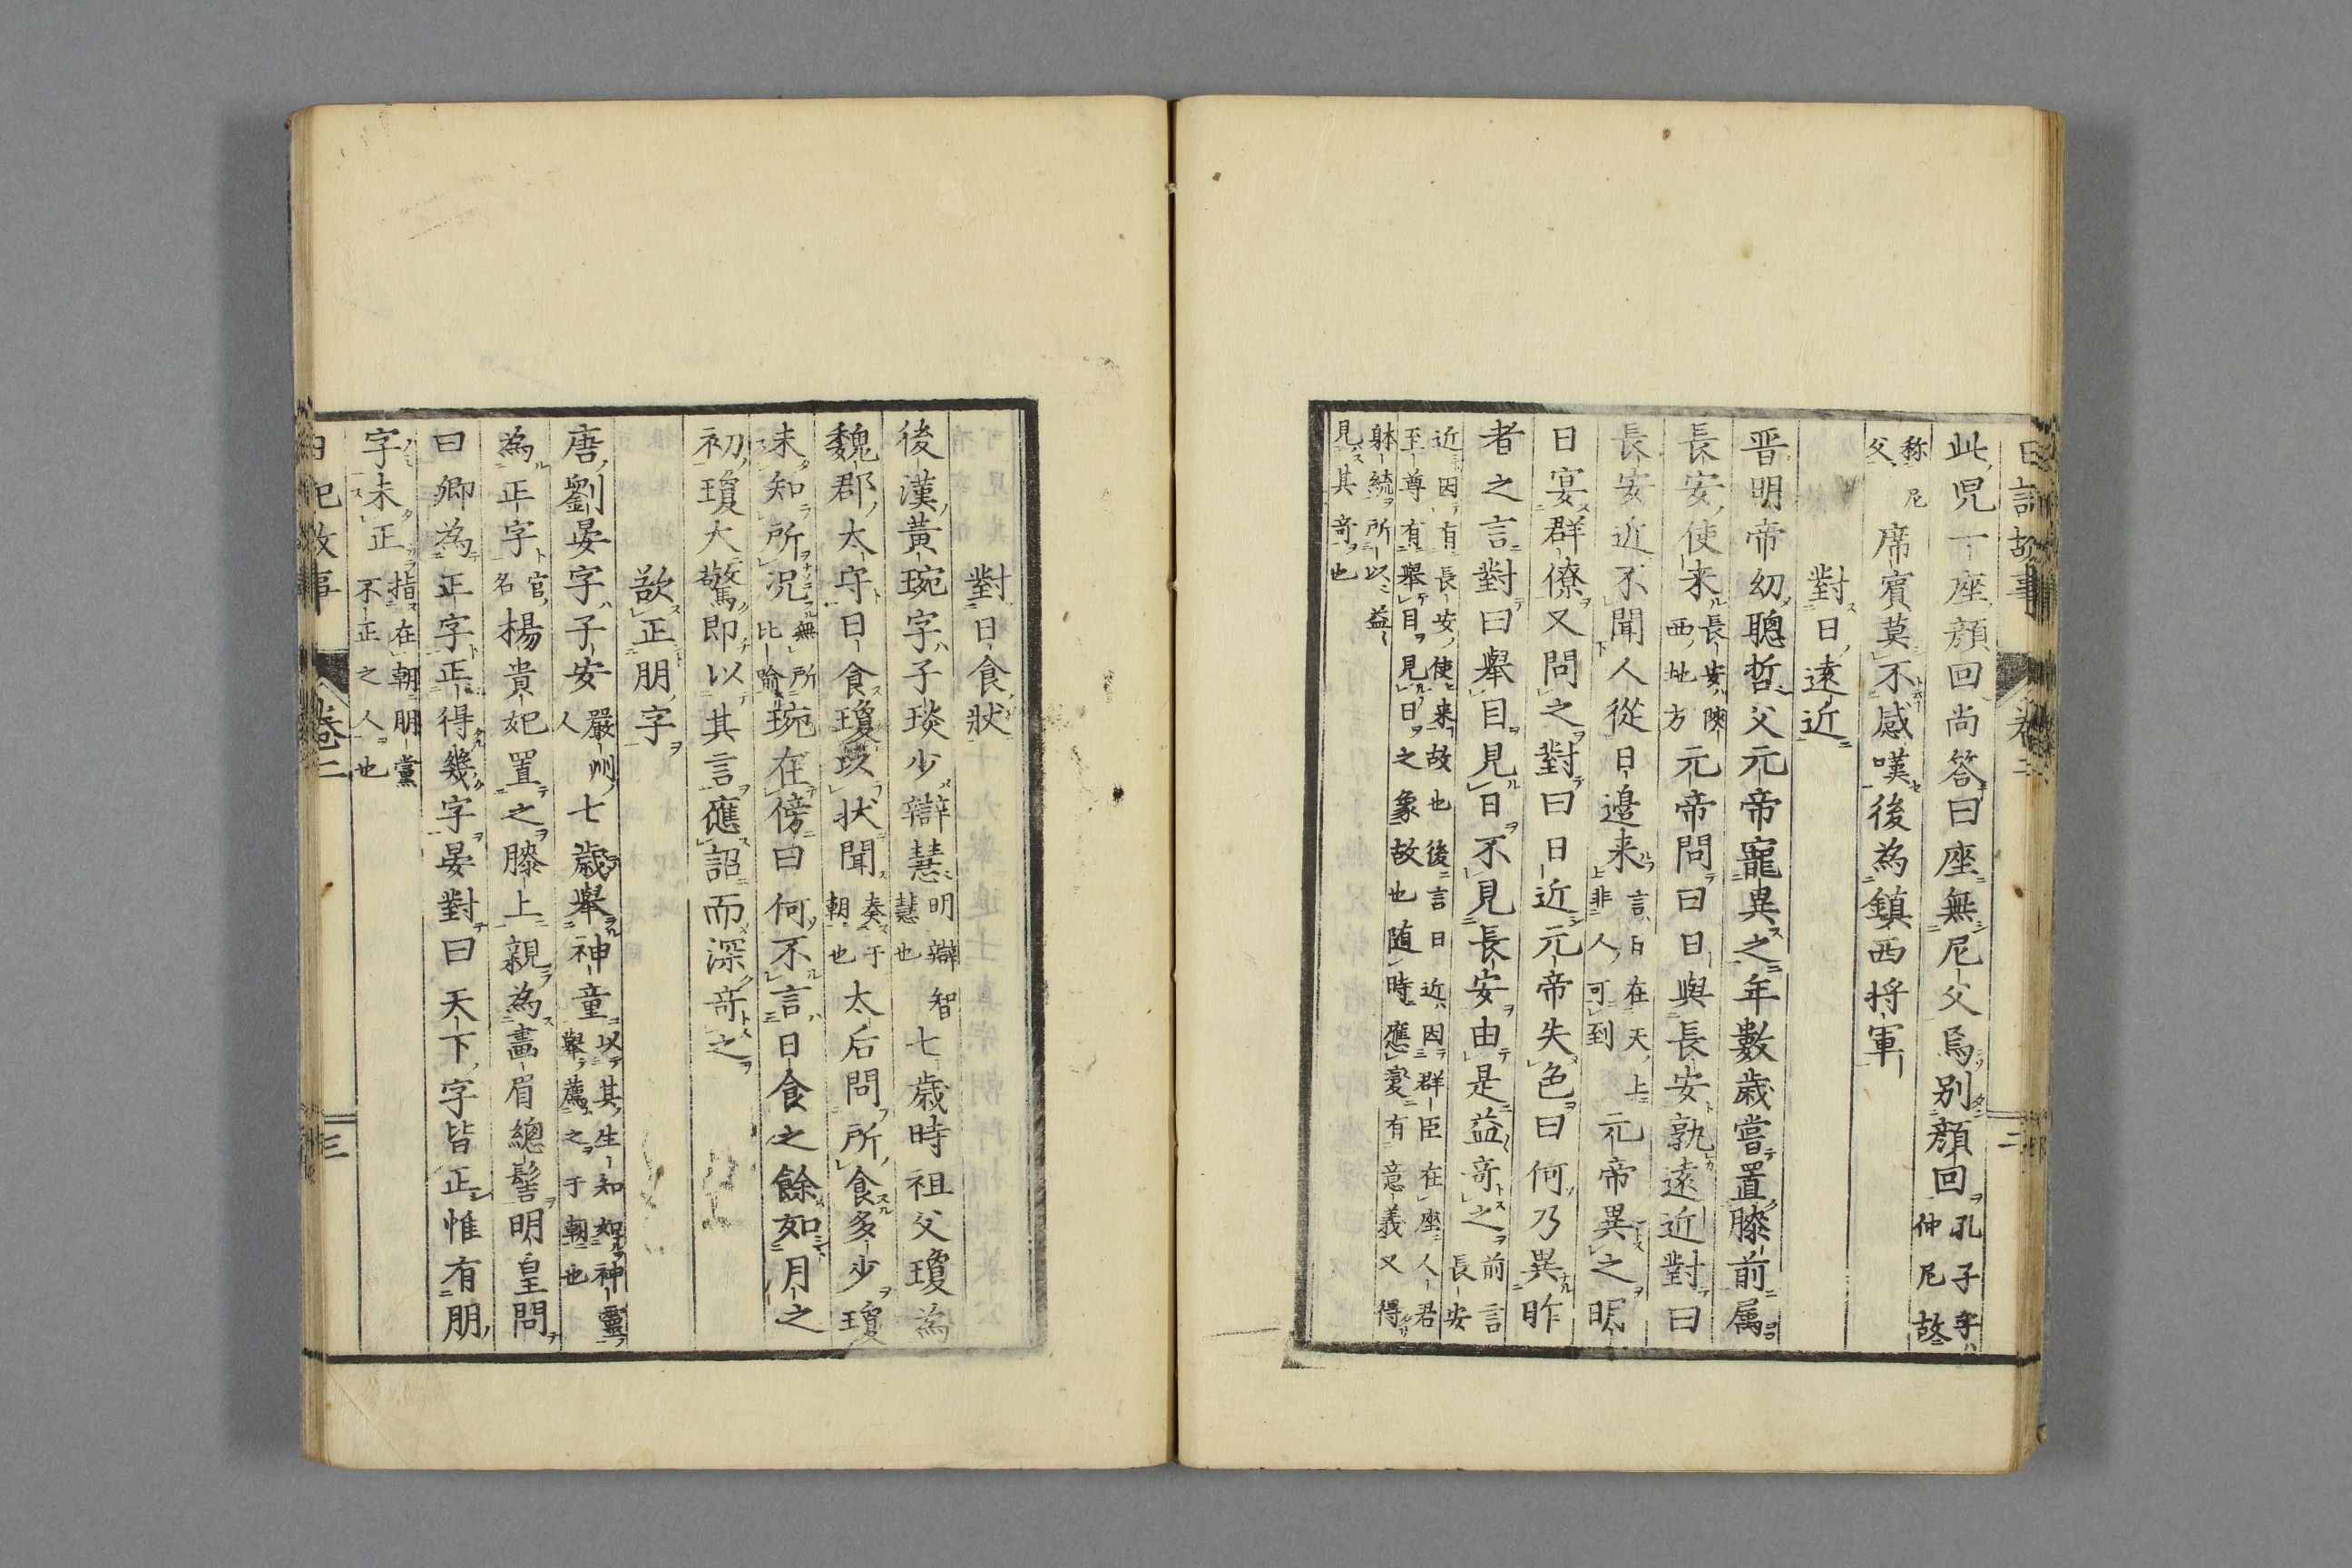 日記故事 卷二 二
此児一座顔回尚答曰座無尼父焉別顔回孔子字仲尼故
称尼父席賓莫不感嘆後為鎮西将軍
對日遠近
晋明帝幼聰哲父元帝寵異之年數歳嘗置膝前属
長安使来長安陝西地方元帝問曰日與長安孰遠近對曰
長安近不聞人從日邉来言日在天上非人可到元帝異之明
日宴群僚又問之對曰日近元帝失色曰何乃異昨
者之言對曰舉目見日不見長安由是益奇之前言長安
近因有長安使来故也後言日近因群臣在座人君
至尊有舉目見日之象故也随時應変有意義又得
躰統所以益
見其奇也
對日食狀
後漢黄琬字子琰少辯慧明辯智慧也七歳時祖父瓊為
魏郡太守日食瓊以状聞奏于朝也太后問所食多少瓊
未知所況無所比喩琬在傍曰何不言日食之餘如月之
初瓊大驚即以其言應詔而深奇之
欲正朋字
唐劉晏字子安嚴州人七歳舉神童以其生知如神靈舉薦之于朝也
為正字官名楊貴妃置之膝上親為畫眉總髻明皇問
曰卿為正字正得幾字晏對曰天下字皆正惟有朋
字未正指在朝朋黨不正之人也
日記故事 卷二 三